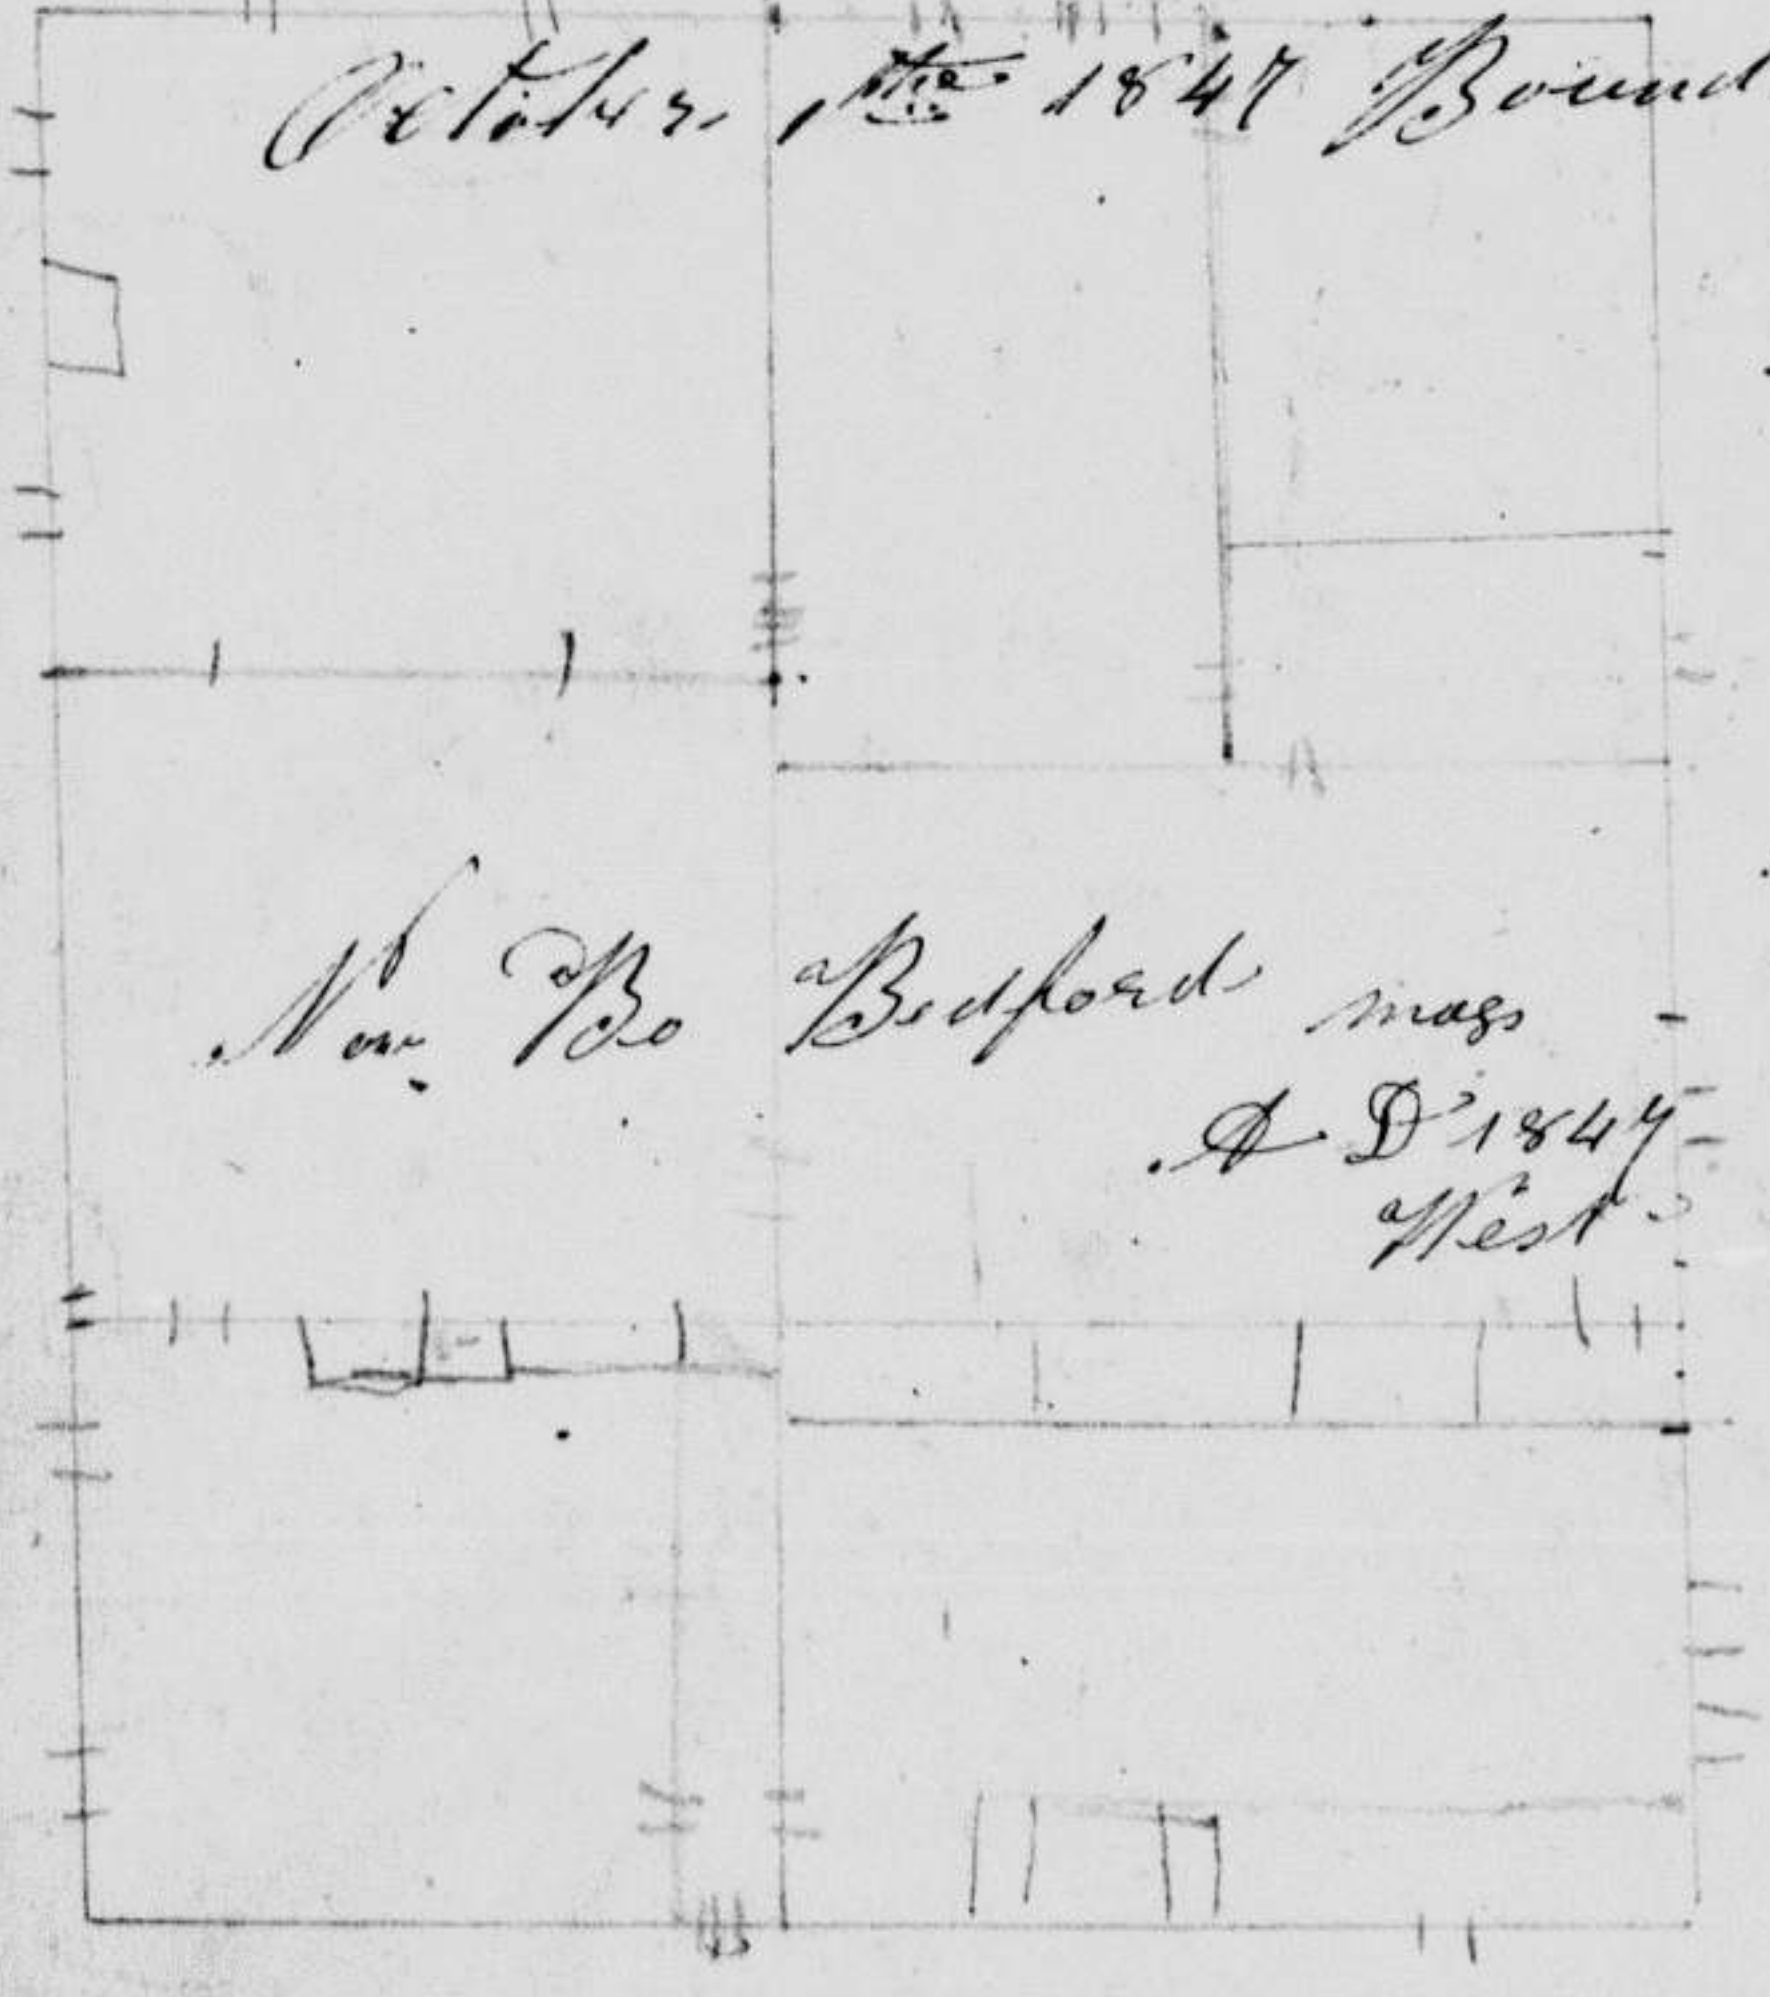 October 1the 1847 Bound
New Bo Bedford mass
A D 1847
West